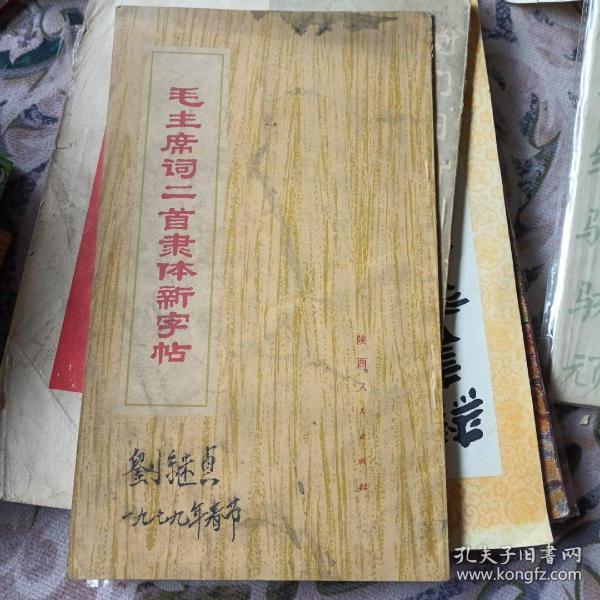 毛主席词二首隶体新字帖
陕西人民出版社
劉继贞
一九七九年春节
孔夫子旧书网
www.kongfz.com